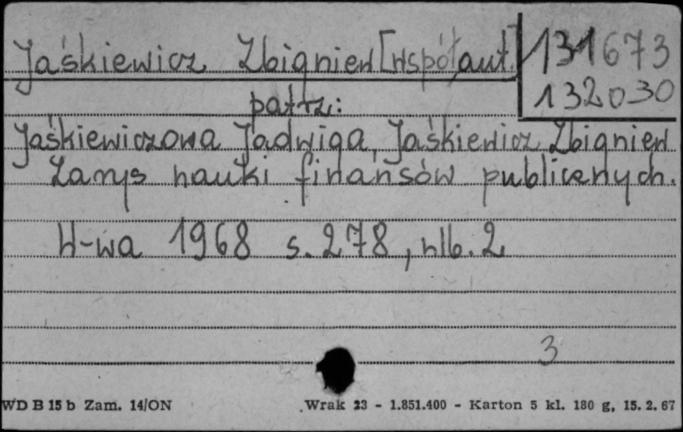 Jaśkiewicz Zbigniew [współaut.]
131673
132030
patrz:
Jaśkiewiczowa Jadwiga, Jaśkiewicz Zbigniew
Zarys nauki finansów publicznych.
W-wa 1968 s. 278, nlb. 2
3
WD B 15 b Zam. 14/ON Wrak 23 - 1.851.400 - Karton 5 kl. 180 g, 15. 2. 67